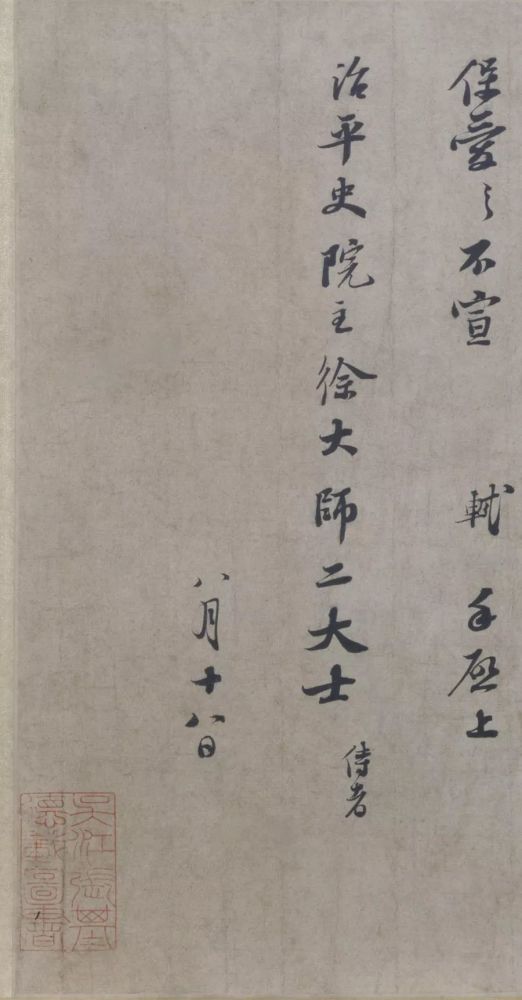 保愛々不宣 軾 手啟上
治平史院主徐大師二大士 侍者
八月十八日
吳江張基
德載圖書